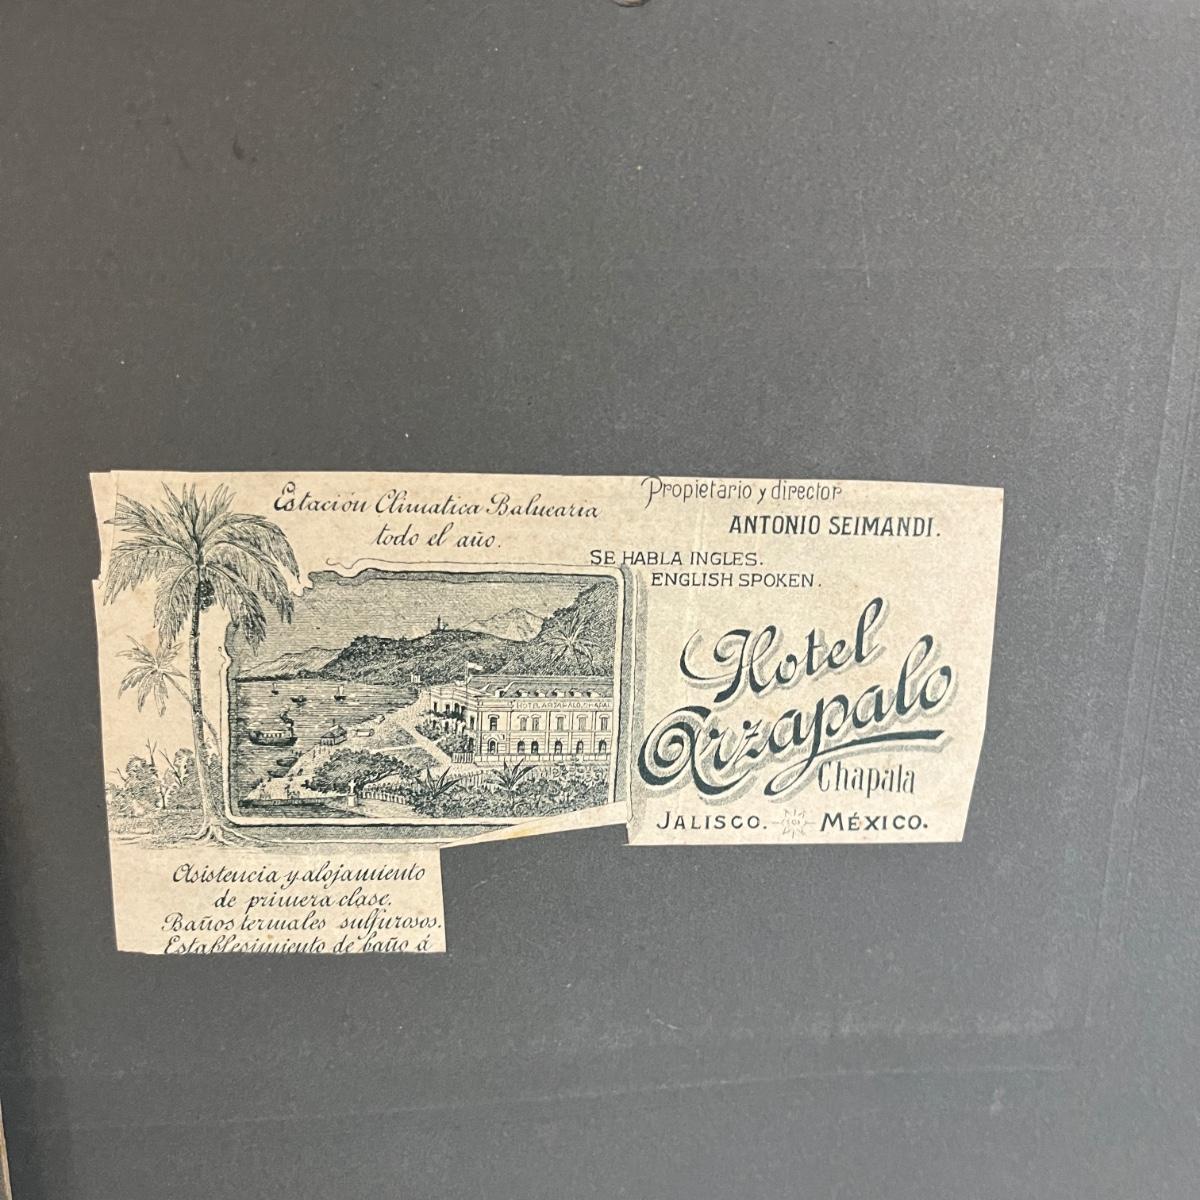 Estación Climatica Balnearia
todo el año.
Propietario y director
ANTONIO SEIMANDI.
SE HABLA INGLES.
ENGLISH SPOKEN.
HOTEL ARZAPALO, CHAPAL
Hotel
Arzapalo
Chapala
JALISCO. MÉXICO.
Asistencia y alojamiento
de primera clase.
Baños termales sulfurosos.
Establesimiento de baño á